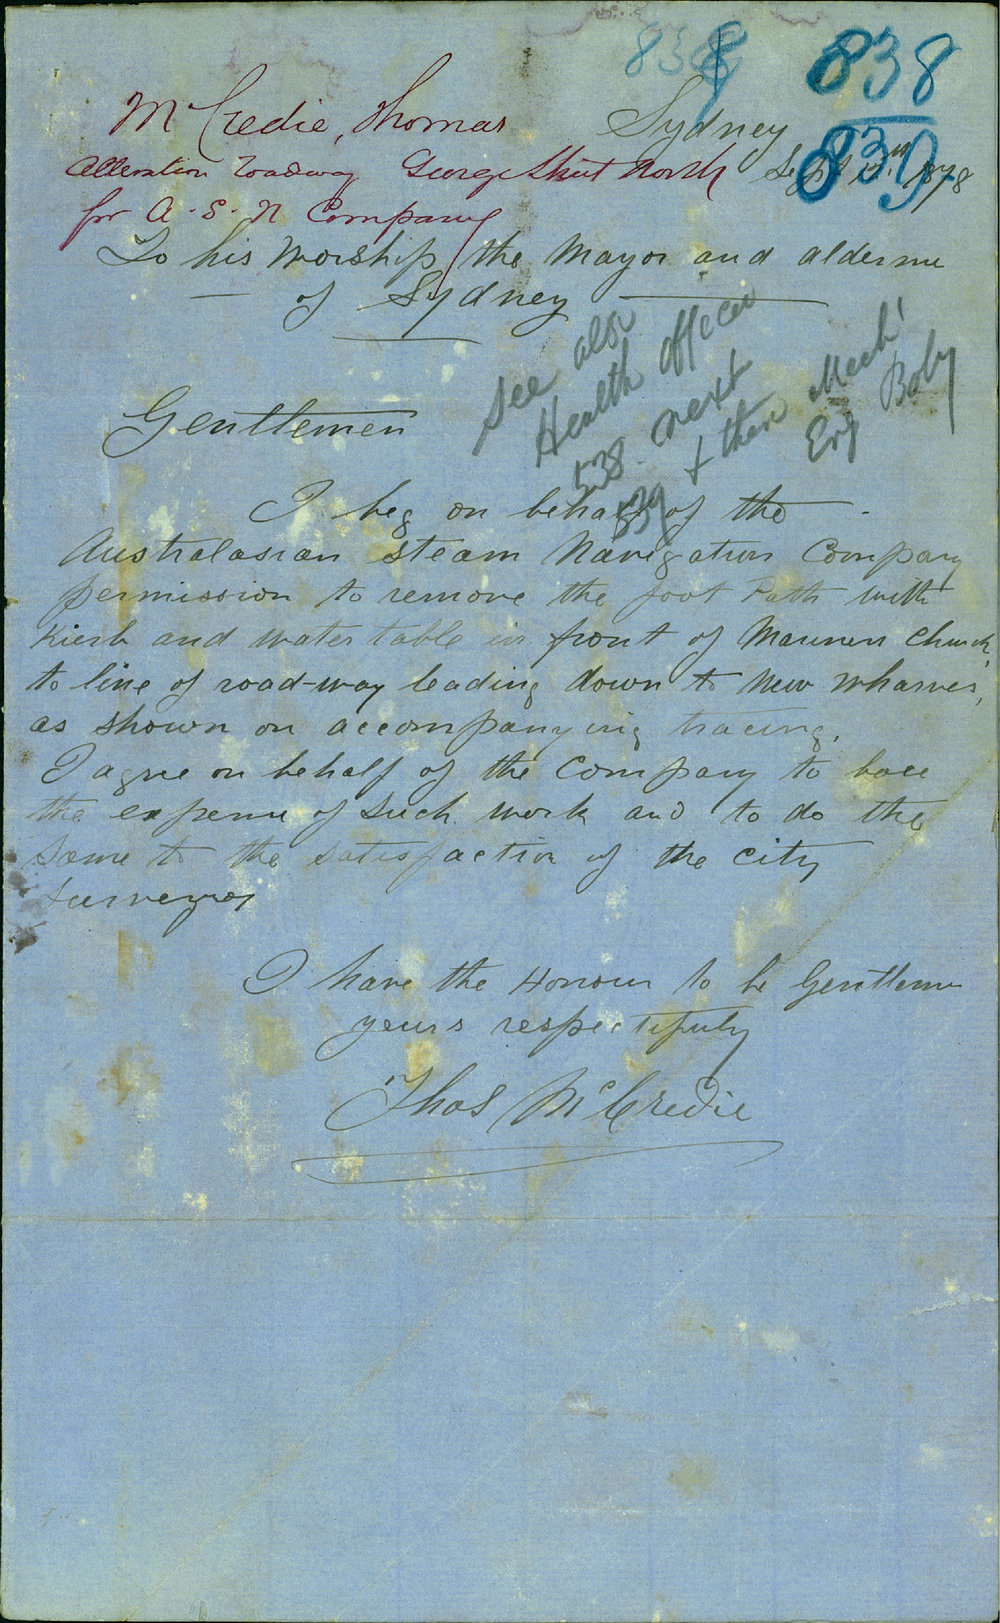 838 838
839
McCredie, Thomas
Alteration roadway George Street North
for A. S. N Company
Sydney
Sept 1878
To his Worship the Mayor and aldermen
of Sydney
See also
Health Officer
538 next
839 & then Mech'
Eng Boby
Gentlemen
I beg on behalf of the
Australasian Steam Navigation Company
permission to remove the foot Path with
Kierb and water table in front of Mariners Church,
to line of road-way leading down to New Wharves,
as shown on accompanying tracing.
I agree on behalf of the Company to bare
the expense of such work and to do the
same to the satisfaction of the City
Surveyor
I have the Honour to be Gentlemen
yours respectifuly
Thos McCredie